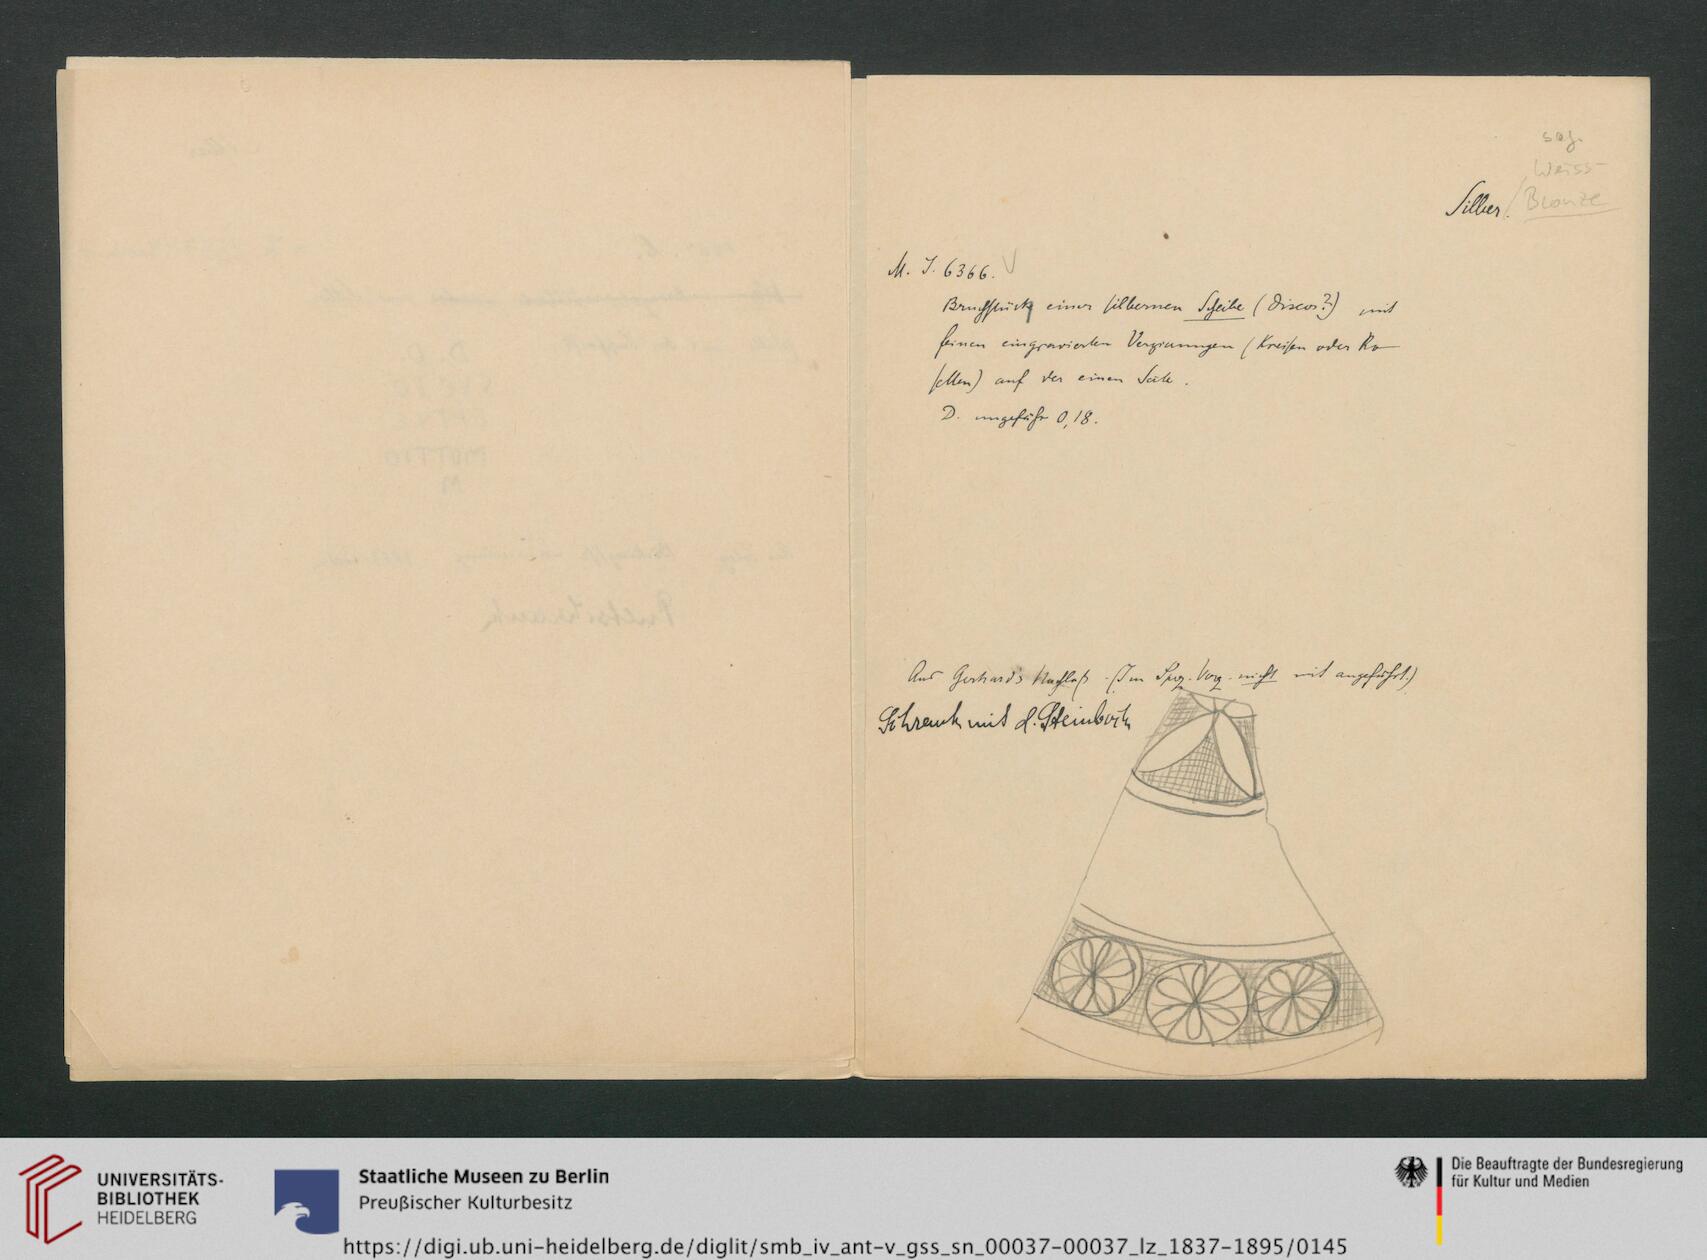 sog.
Weiss-
Silber. / Bronze
M. I. 6366. V
Bruchstück einer silbernen Scheibe (Discos?) mit
feinen eingravierten Verzierungen (Kreisen oder Ro-
setten) auf der einen Seite.
D. ungefähr 0,18.
Aus Gerhard's Nachlaß. (Im Spez. Verz. nicht mit angeführt.)
Schrank mit d. Steinbock
UNIVERSITÄTS-
BIBLIOTHEK
HEIDELBERG
Staatliche Museen zu Berlin
Preußischer Kulturbesitz
https://digi.ub.uni-heidelberg.de/diglit/smb_iv_ant-v_gss_sn_00037-00037_lz_1837-1895/0145
Die Beauftragte der Bundesregierung
für Kultur und Medien